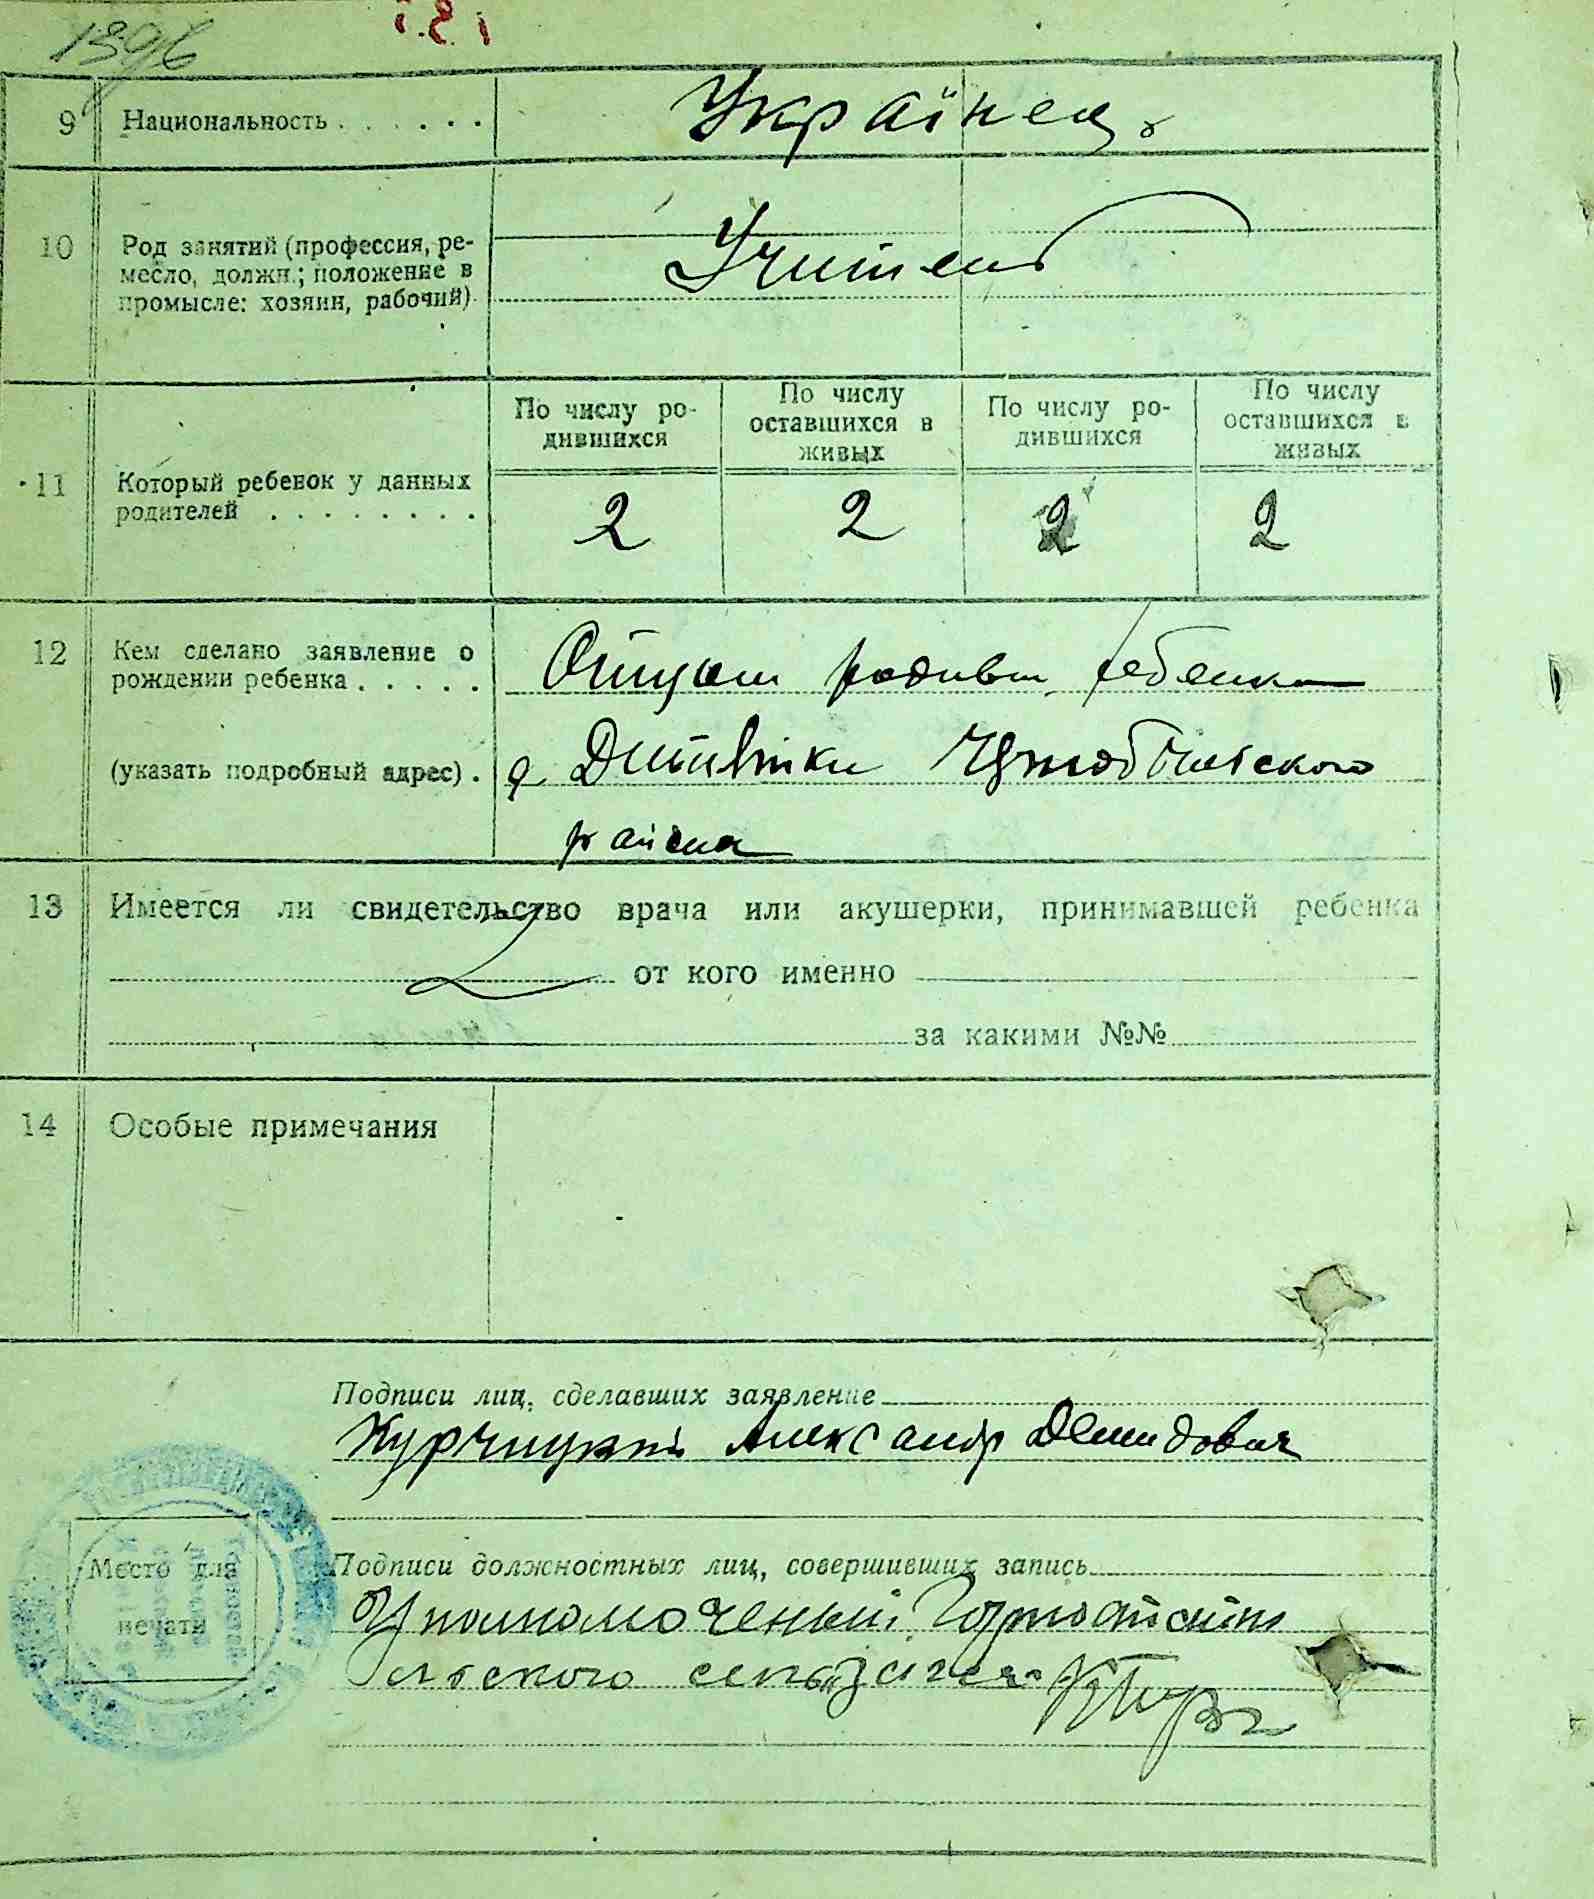 1396
9 Национальность . . . . . . Украінец.
10 Род занятий (профессия, ре-
месло, должн.; положение в
промысле: хозяин, рабочий)
Учитель
По числу ро-
дившихся
По числу
оставшихся в
живых
По числу ро-
дившихся
По числу
оставшихся в
живых
11 Который ребенок у данных
родителей . . . . . . . .
2 2 2 2
12 Кем сделано заявление о
рождении ребенка . . . . .
Отцом родивш. ребенка
(указать подробный адрес) .
д Дитятки
района
13 Имеется ли свидетельство врача или акушерки, принимавшей ребенка
от кого именно
за какими №№
14 Особые примечания
Подписи лиц, сделавших заявление
Александр Демидович
Место для
печати
Подписи должностных лиц, совершивших запись
Уполномоченый